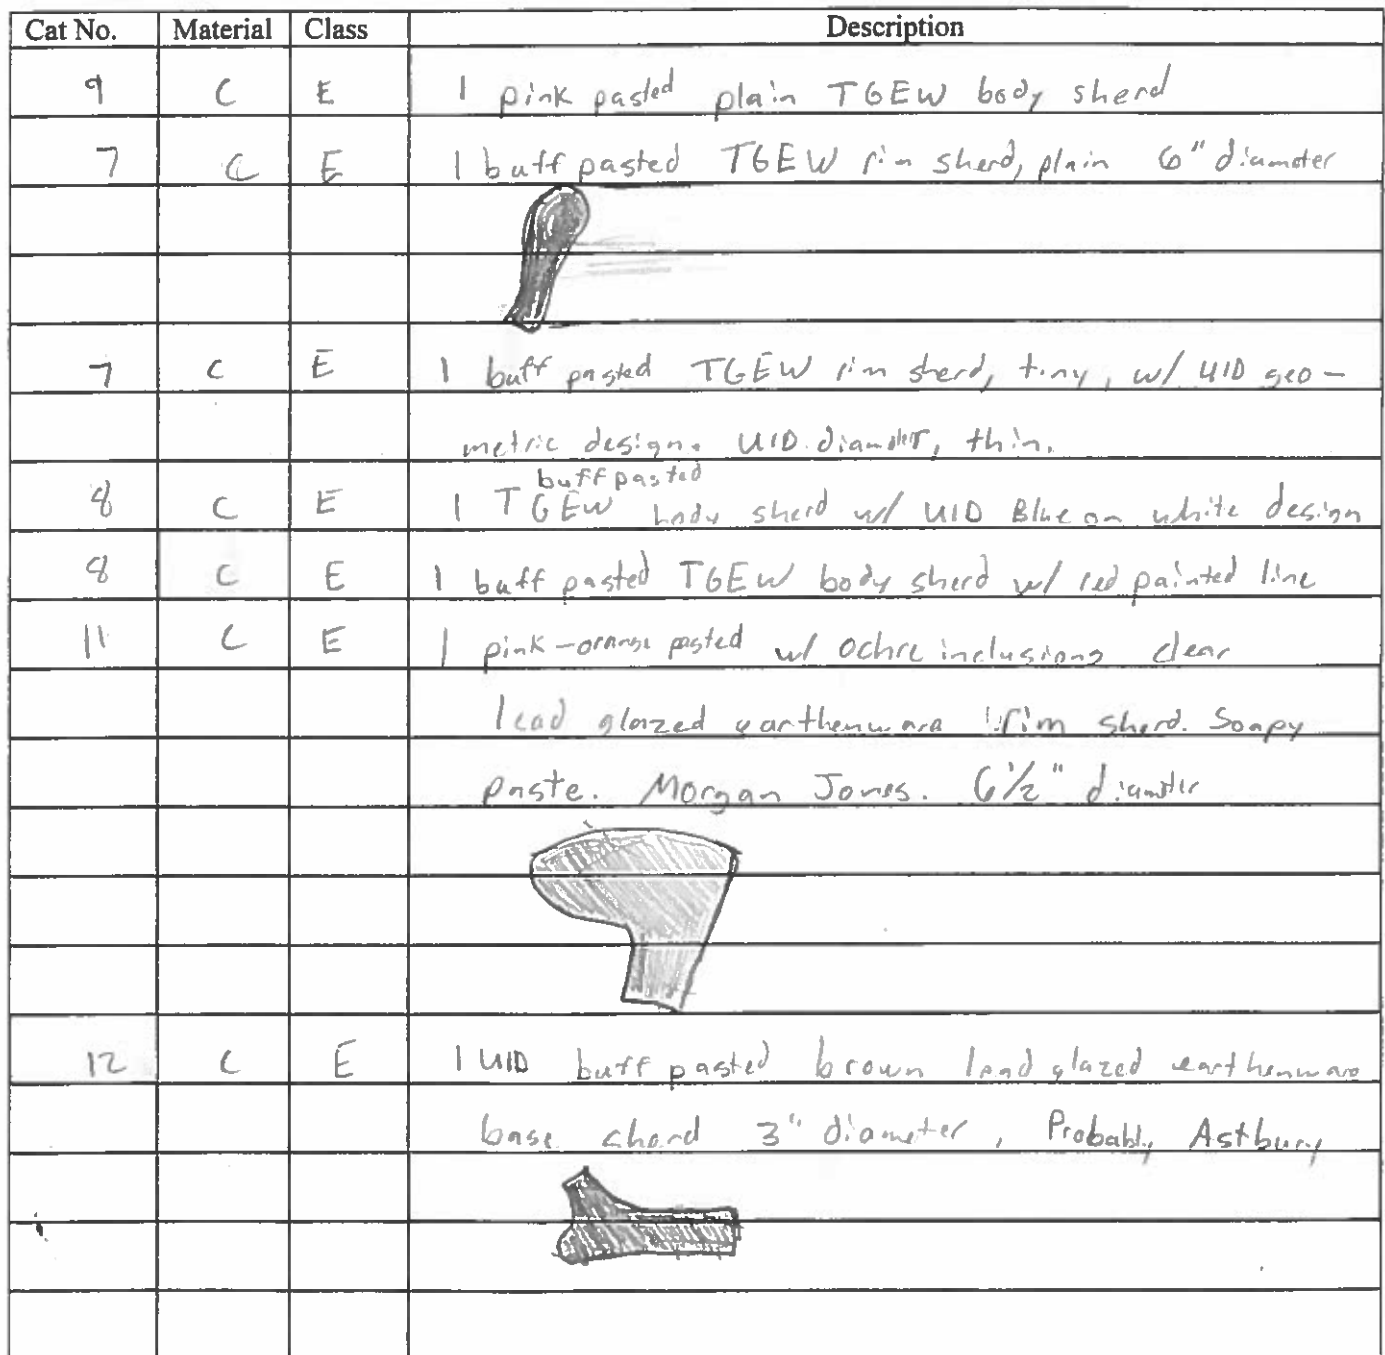 Cat No. Material Class Description
9 C E 1 pink pasted plain TGEW body sherd
7 C E 1 buff pasted TGEW rim sherd, plain 6" diameter
7 C E 1 buff pasted TGEW rim sherd, tiny, w/ UID geo-
metric design. UID diameter, thin.
buff pasted
8 C E 1 TGEW body sherd w/ UID Blue on white design
8 C E 1 buff pasted TGEW body sherd w/ red painted line
11 C E 1 pink-orange pasted w/ ochre inclusions clear
lead glazed earthenware rim sherd. Soapy
paste. Morgan Jones. 6 1/2" diameter
12 C E 1 UID buff pasted brown lead glazed earthenware
base sherd 3" diameter, Probably Astbury